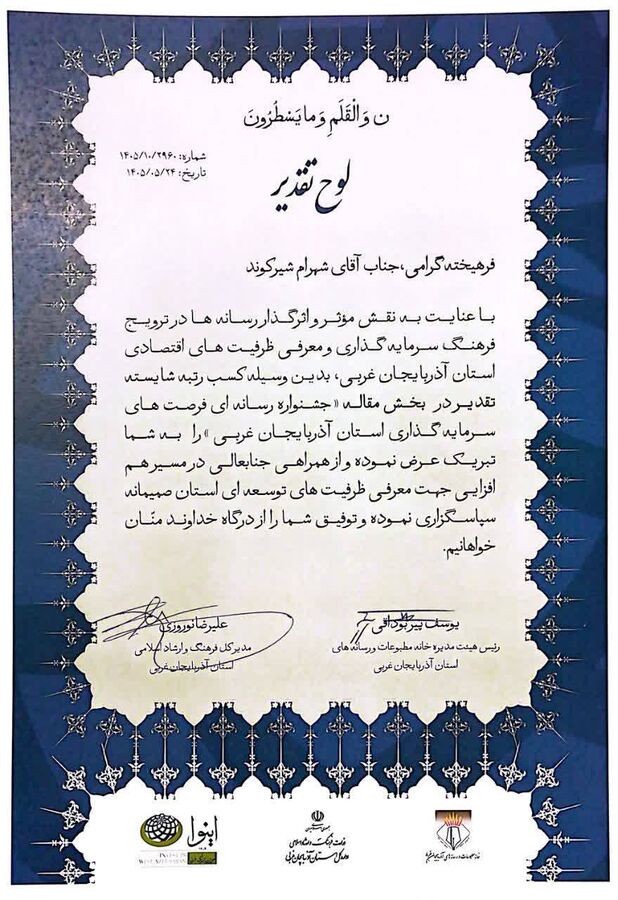 ن وَالْقَلَمِ وَمَا يَسْطُرُونَ
شماره: ۱۴۰۵/۱۰/۲۹۶۰
تاریخ: ۱۴۰۵/۰۵/۲۴
لوح تقدیر
فرهیخته گرامی، جناب آقای شهرام شیرکوند
با عنایت به نقش مؤثر و اثرگذار رسانه ها در ترویج
فرهنگ سرمایه گذاری و معرفی ظرفیت های اقتصادی
استان آذربایجان غربی، بدین وسیله کسب رتبه شایسته
تقدیر در بخش مقاله «جشنواره رسانه ای فرصت های
سرمایه گذاری استان آذربایجان غربی» را به شما
تبریک عرض نموده و از همراهی جنابعالی در مسیر هم
افزایی جهت معرفی ظرفیت های توسعه ای استان صمیمانه
سپاسگزاری نموده و توفیق شما را از درگاه خداوند منّان
خواهانیم.
یوسف پیربوداقی
رئیس هیئت مدیره خانه مطبوعات و رسانه های
استان آذربایجان غربی
علیرضا نوروزی
مدیر کل فرهنگ و ارشاد اسلامی
استان آذربایجان غربی
وزارت فرهنگ و ارشاد اسلامی
اداره کل استان آذربایجان غربی
اینوا
INVEST IN
WEST AZERBAIJAN